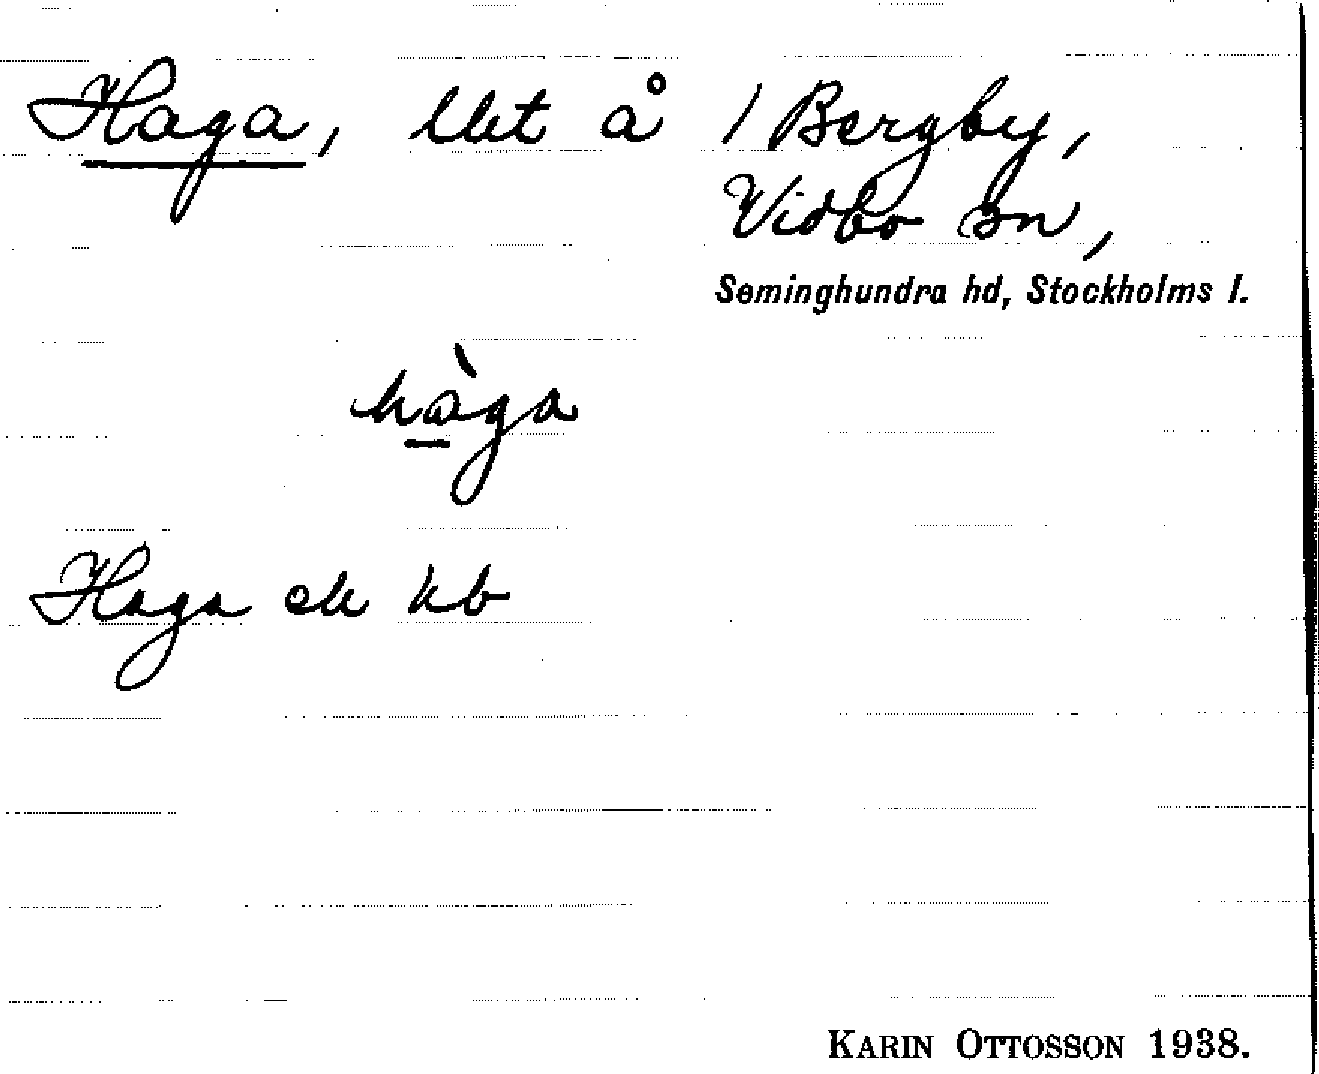 Haga, llet å / Bergby,
Vidbo sn,
Seminghundra hd, Stockholms l.
hàga
Haga ek kb
KARIN OTTOSSON 1938.